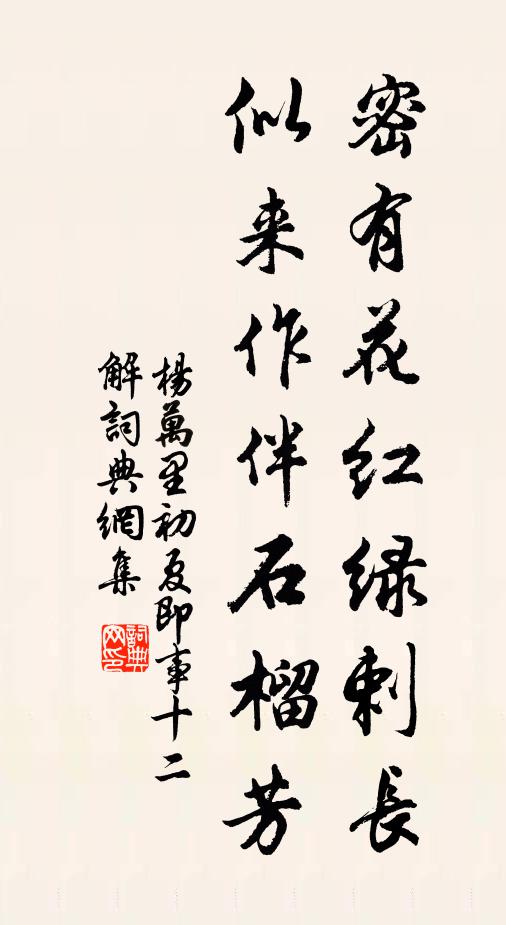 密有花红绿刺長
似来作伴石榴芳
楊萬里初夏即事十二
解詞典網集
詞典
网印